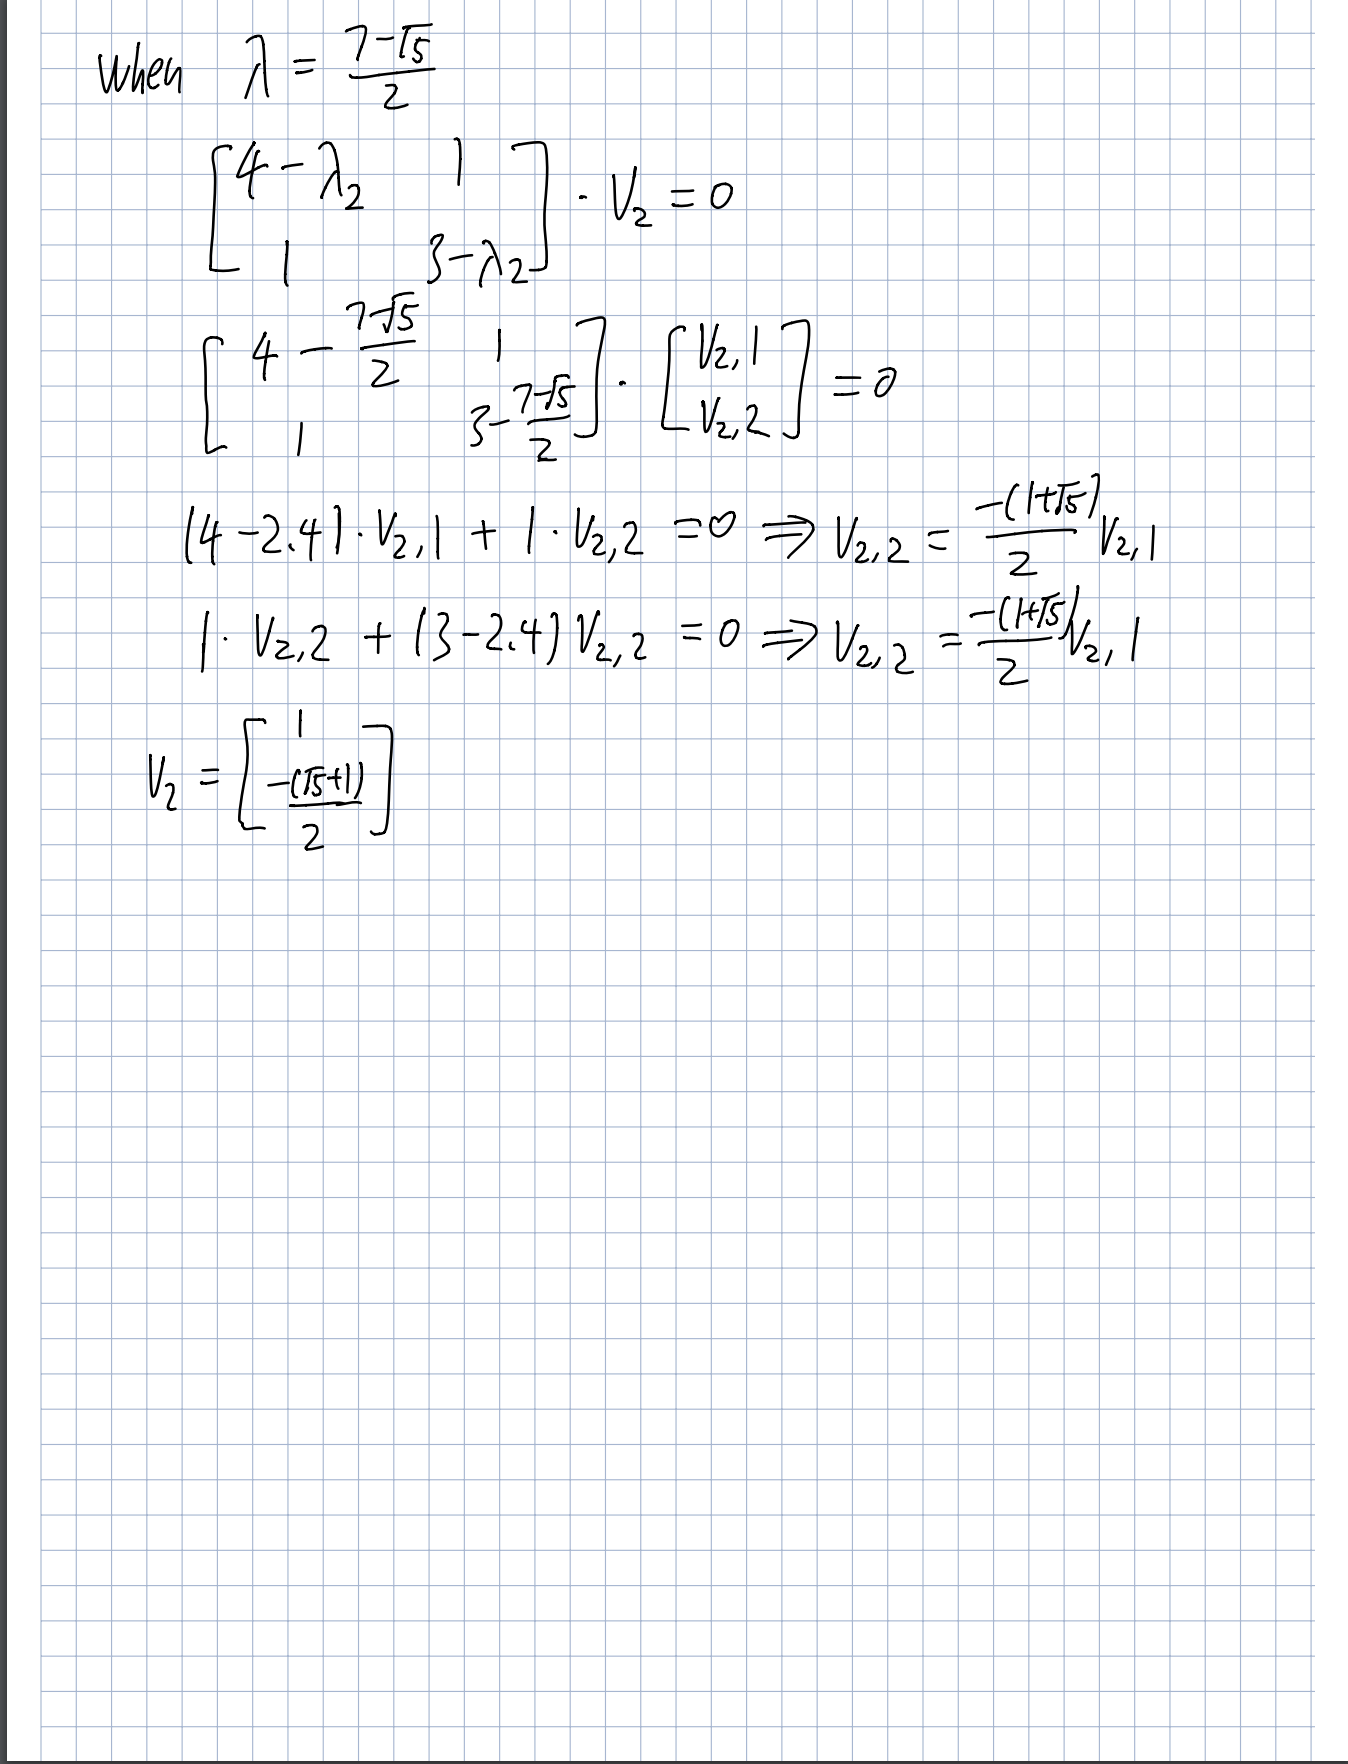 When λ = (7-√5)/2
[4-λ2 1; 1 3-λ2] · V2 = 0
[4 - (7-√5)/2 1; 1 3 - (7-√5)/2] · [V2,1; V2,2] = 0
(4-2.4)·V2,1 + 1·V2,2 = 0 ⇒ V2,2 = -(1+√5)/2 V2,1
1·V2,2 + (3-2.4)V2,2 = 0 ⇒ V2,2 = -(1+√5)/2 V2,1
V2 = [1; -(√5+1)/2]